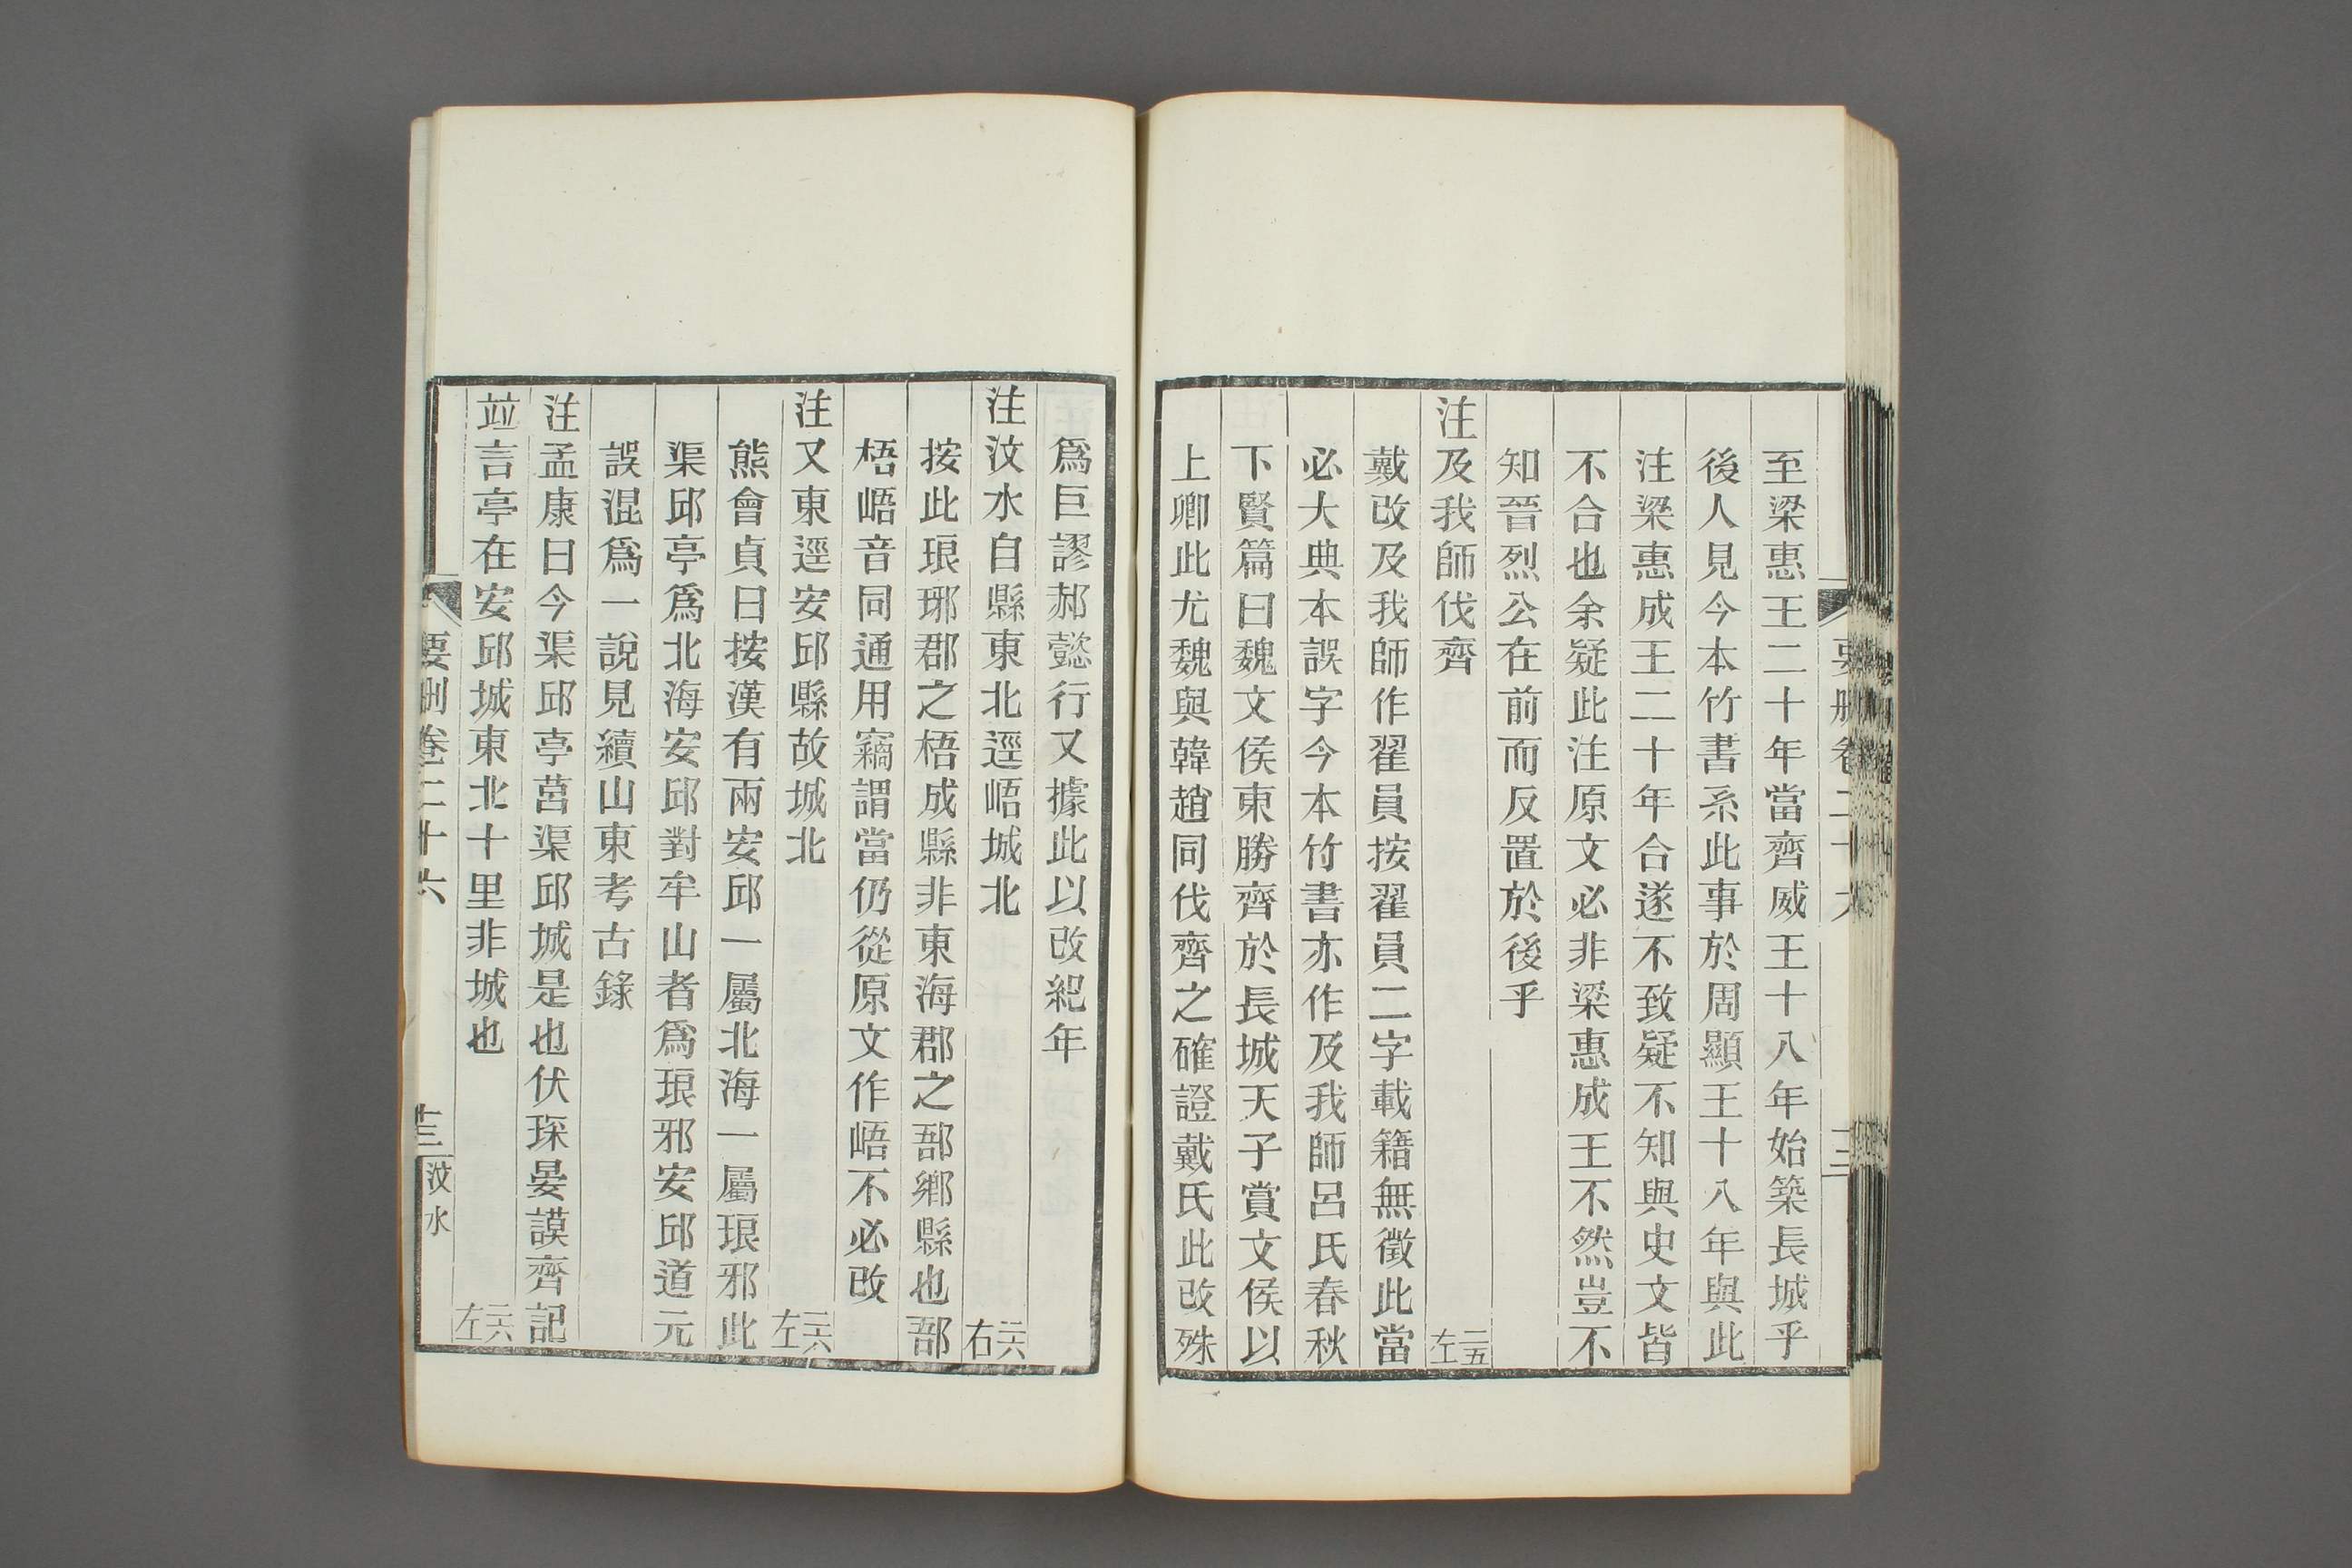 至梁惠王二十年當齊威王十八年始築長城乎
後人見今本竹書系此事於周顯王十八年與此
注梁惠成王二十年合遂不致疑不知與史文皆
不合也余疑此注原文必非梁惠成王不然豈不
知晉烈公在前而反置於後乎
注及我師伐齊 二五左
戴改及我師作翟員按翟員二字載籍無徵此當
必大典本誤字今本竹書亦作及我師呂氏春秋
下賢篇曰魏文侯東勝齊於長城天子賞文侯以
上卿此尤魏與韓趙同伐齊之確證戴氏此改殊
爲巨謬郝懿行又據此以改紀年
注汶水自縣東北逕峿城北 二六右
按此琅琊郡之梧成縣非東海郡之郚鄉縣也郚
梧峿音同通用竊謂當仍從原文作峿不必改
注又東逕安邱縣故城北 二六左
熊會貞曰按漢有兩安邱一屬北海一屬琅邪此
渠邱亭爲北海安邱對牟山者爲琅邪安邱道元
誤混爲一說見續山東考古錄
注孟康曰今渠邱亭莒渠邱城是也伏琛晏謨齊記
竝言亭在安邱城東北十里非城也 二六左
要刪卷二十六 十三 汶水